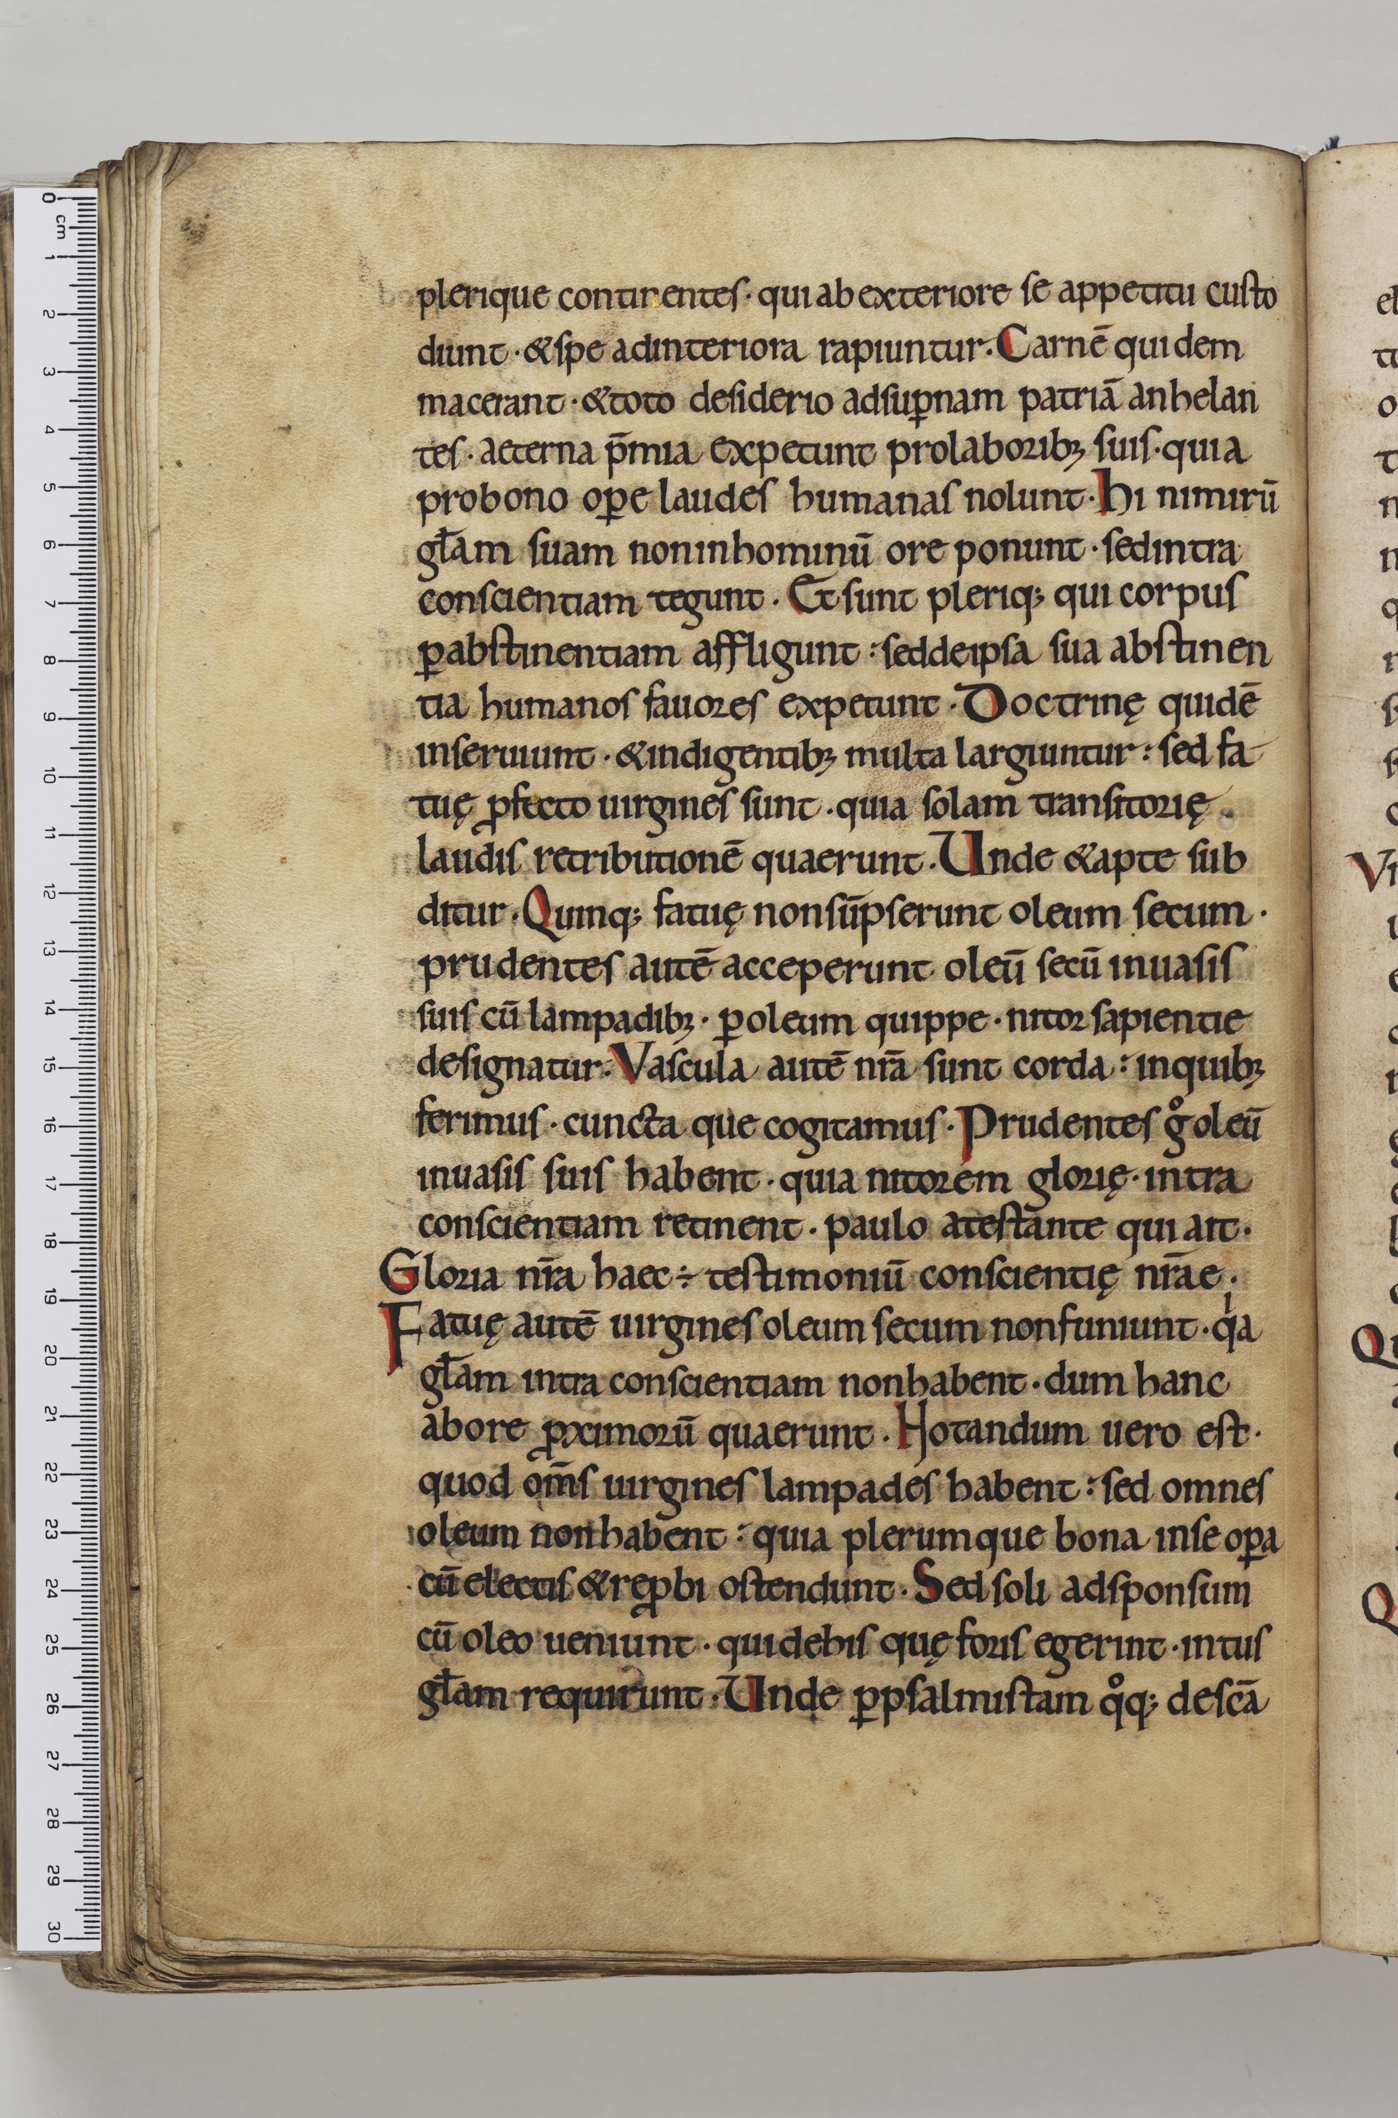 plerique continentes · qui ab exteriore se appetitu custo
diunt · & spe ad interiora rapiuntur. Carnē quidem
macerant · & toto desiderio ad sup̄nam patriā anhelan
tes · aeterna p̄mia expetunt pro laborib; suis · quia
pro bono op̄e laudes humanas nolunt · hi nimirū
gl̄am suam non in hominū ore ponunt · sed intra
conscientiam tegunt · Et sunt pleriq; qui corpus
p̱ abstinentiam affligunt : sed de ipsa sua abstinen
tia humanos fauores expetunt · Doctrinę quidē
inseruiunt · & indigentib; multa largiuntur : sed fa
tuę ꝓfecto uirgines sunt · quia solam transitorię
laudis retributionē quaerunt · Unde & apte sub
ditur · Quinq; fatuę non sūpserunt oleum secum ·
prudentes autē acceperunt oleū secū in uasis
suis cū lampadib; · ꝑ oleum quippe · nitor sapientie
designatur · Vascula autē nr̄a sunt corda : in quib;
ferimus · cuncta que cogitamus · Prudentes gͦ oleū
in uasis suis habent · quia nitorem glorię · intra
conscientiam retinent · paulo atestante qui ait ·
Gloria nr̄a haec ÷ testimoniū conscientię nr̄ae ·
Fatuę autē uirgines oleum secum non sumunt · qⁱa
gl̄am intra conscientiam non habent · dum hanc
ab ore ꝓximorū quaerunt · Notandum uero est ·
quod om̄s uirgines lampades habent : sed omnes
oleum non habent : quia plerumque bona in se oꝑa
cū electis & reꝓbi ostendunt · Sed soli ad sponsum
cū oleo ueniunt · qui de his quę foris egerint · intus
gl̄am requirunt · Unde ꝑ psalmistam qͦq; de sc̄a